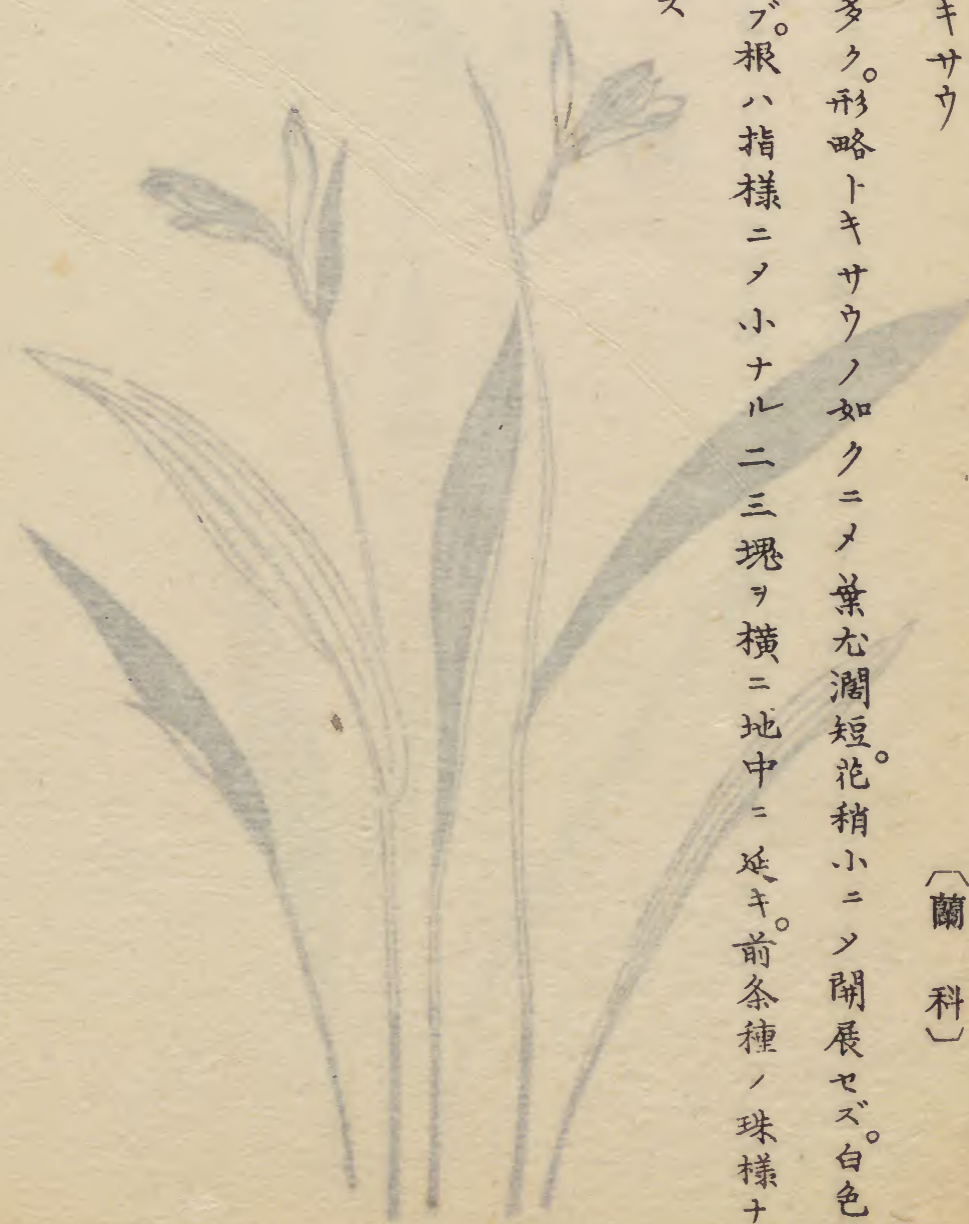 キサウ 〔蘭科〕
多ク。形略トキサウノ如クニメ葉尢濶短。花稍小ニメ開展セズ。白色
ブ。根ハ指様ニメ小ナル二三塊ヲ横ニ地中ニ延キ。前条種ノ珠様ナ
ス